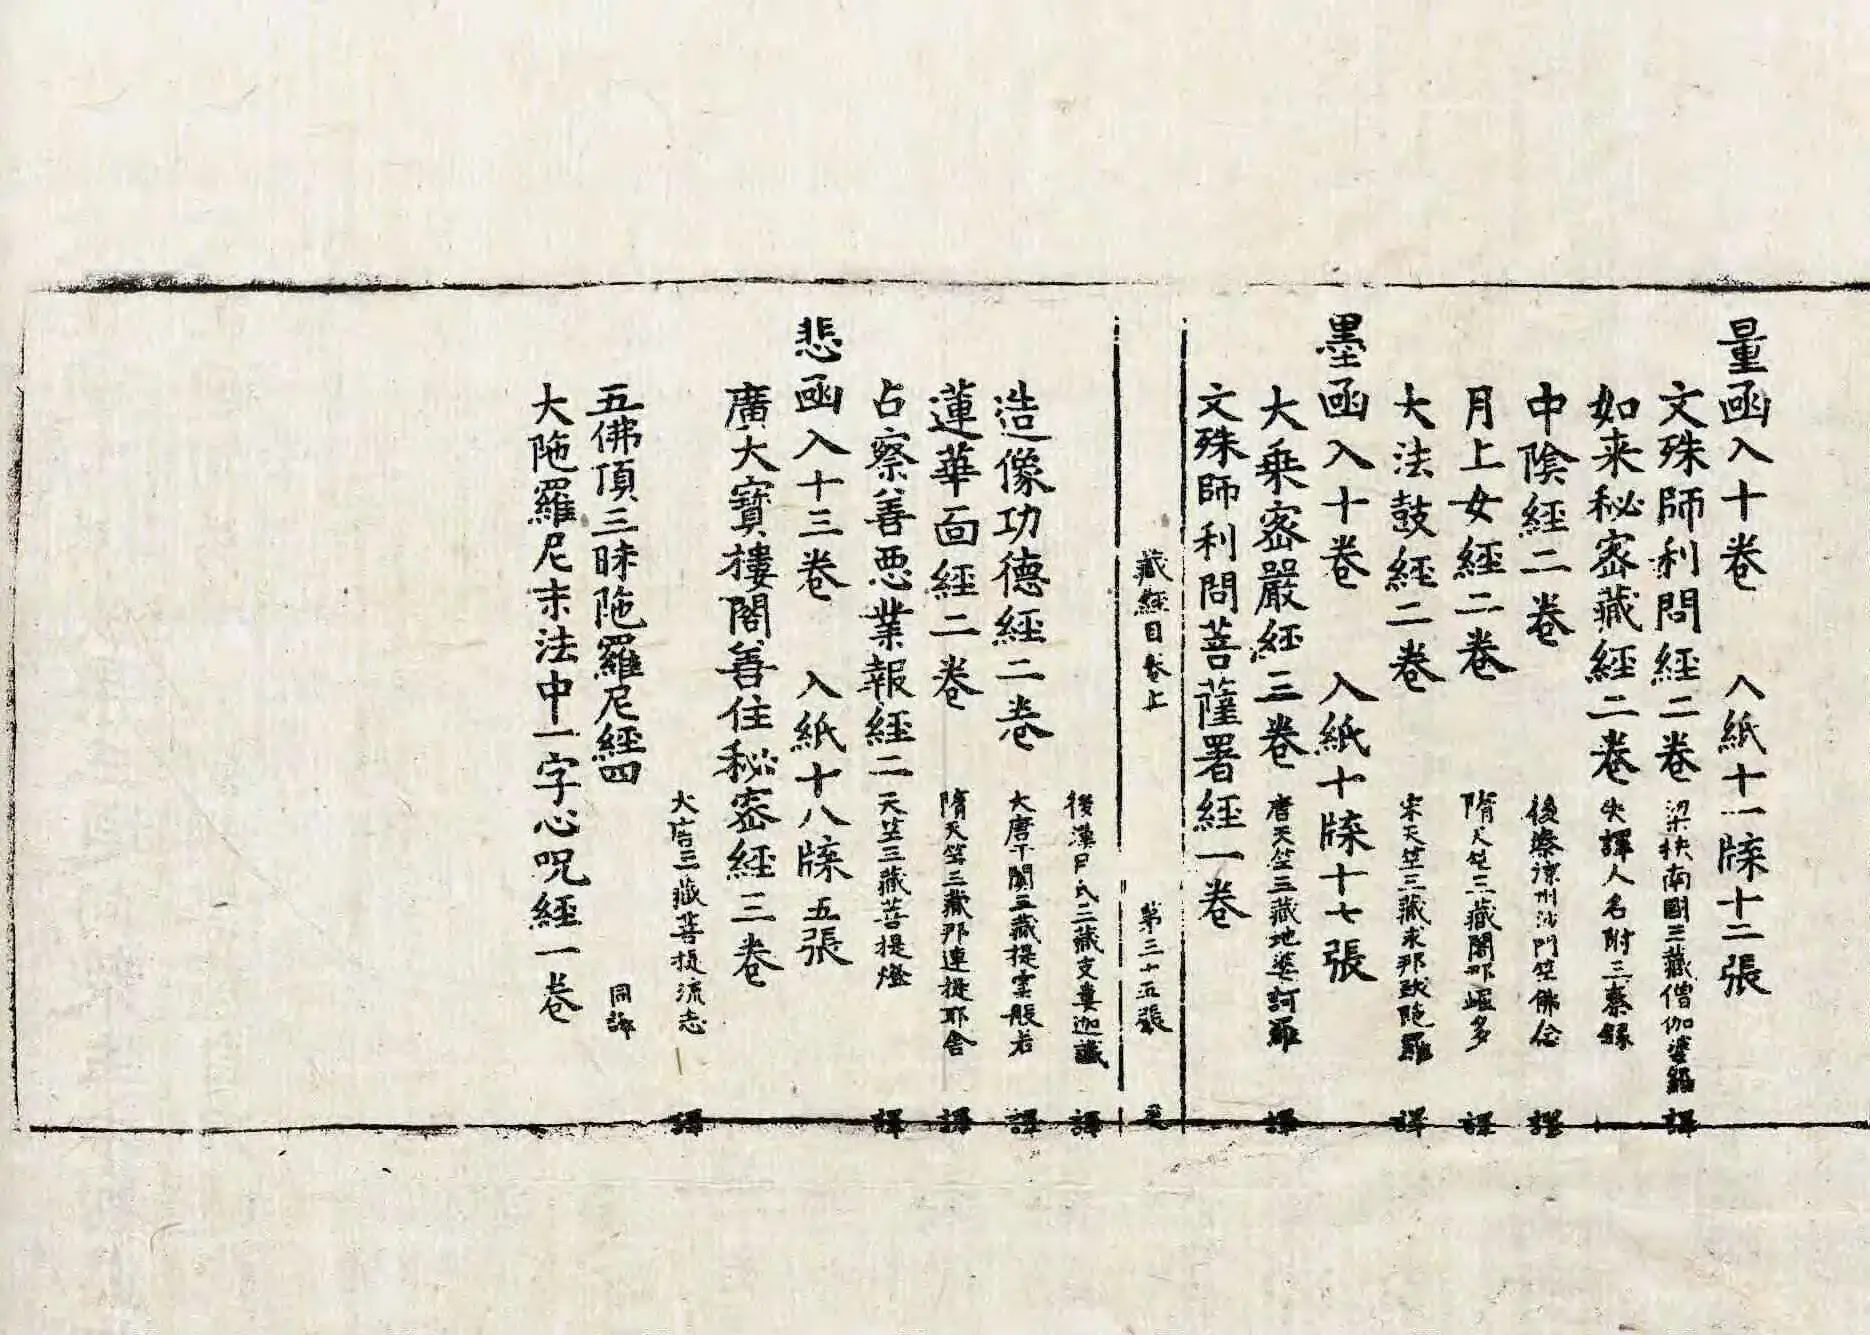 量函入十卷　入紙十一牍十二張
文殊師利問經二卷　梁扶南國三藏僧伽婆羅　譯
如来秘密藏經二卷　失譯人名附三秦録
中陰經二卷　後秦涼州沙門竺佛念　譯
月上女經二卷　隋天竺三藏闍那崛多　譯
大法鼓經二卷　宋天竺三藏求那跋陁羅　譯
墨函入十卷　入紙十牍十七張
大乗密嚴經三卷　唐天竺三藏地婆訶羅　譯
文殊師利問菩薩署經一卷
藏經目卷上　第三十五張
後漢月氏三藏支婁迦讖　譯
造像功德經二卷　大唐于闐三藏提雲般若　譯
蓮華面經二卷　隋天竺三藏那連提耶舍　譯
占察善悪業報經二　天竺三藏菩提燈　譯
悲函入十三卷　入紙十八牍五張
廣大寳樓閣善住秘密經三卷
大唐三藏菩提流志　譯
五佛頂三昧陁羅尼經四　同譯
大陁羅尼末法中一字心呪經一卷